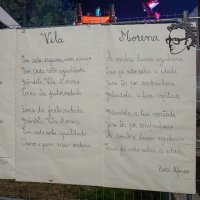 Vila
Em cada esquina, um amigo
Em cada rosto, igualdade
Grândola, Vila Morena
Terra da fraternidade
Terra da fraternidade
Grândola, Vila Morena
Em cada rosto, igualdade
O povo é quem mais ordena
Morena
À sombra duma azinheira
Que já não sabia a idade
Jurei ter por companheira
Grândola, a tua vontade
Grândola, a tua vontade
Jurei ter por companheira
À sombra duma azinheira
Que já não sabia a idade
Zeca Afonso